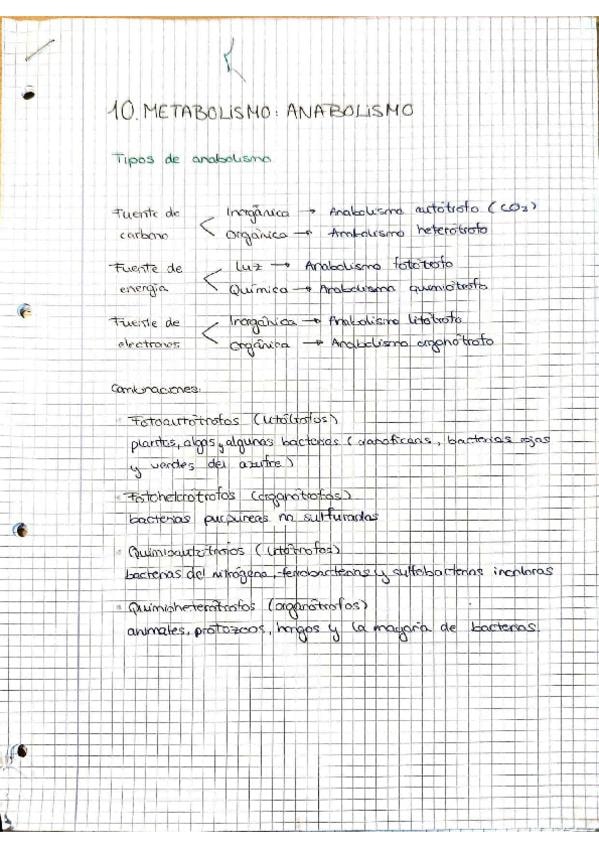 10. METABOLISMO: ANABOLISMO
Tipos de anabolismo
Fuente de carbono < Inorgánica → Anabolismo autótrofo (CO₂)
Orgánica → Anabolismo heterótrofo
Fuente de energía < Luz → Anabolismo fotótrofo
Química → Anabolismo quimiótrofo
Fuente de electrones < Inorgánica → Anabolismo litótrofo
Orgánica → Anabolismo organótrofo
Combinaciones:
· Fotoautótrofos (litótrofos)
plantas, algas, algunas bacterias (cianofíceas, bacterias rojas
y verdes del azufre)
· Fotoheterótrofos (organótrofos)
bacterias purpureas no sulfuradas
· Quimioautótrofos (litótrofos)
bacterias del nitrógeno, ferrobacterias y sulfobacterias incoloras
· Quimioheterótrofos (organótrofos)
animales, protozoos, hongos y la mayoría de bacterias.